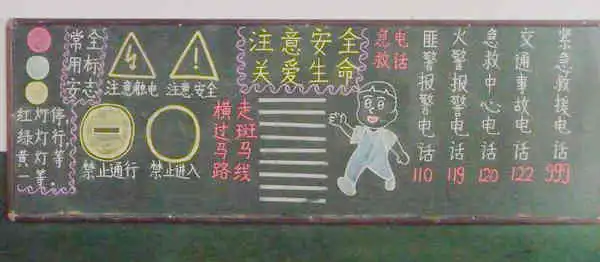 常用安
全标志
红灯停,
绿灯行,
黄灯等
一等。
注意触电
注意安全
禁止通行
禁止进入
注意安全
关爱生命
横过马路
走斑马线
急救
电话
匪警报警电话110
火警报警电话119
急救中心电话120
交通事故电话122
紧急救援电话999